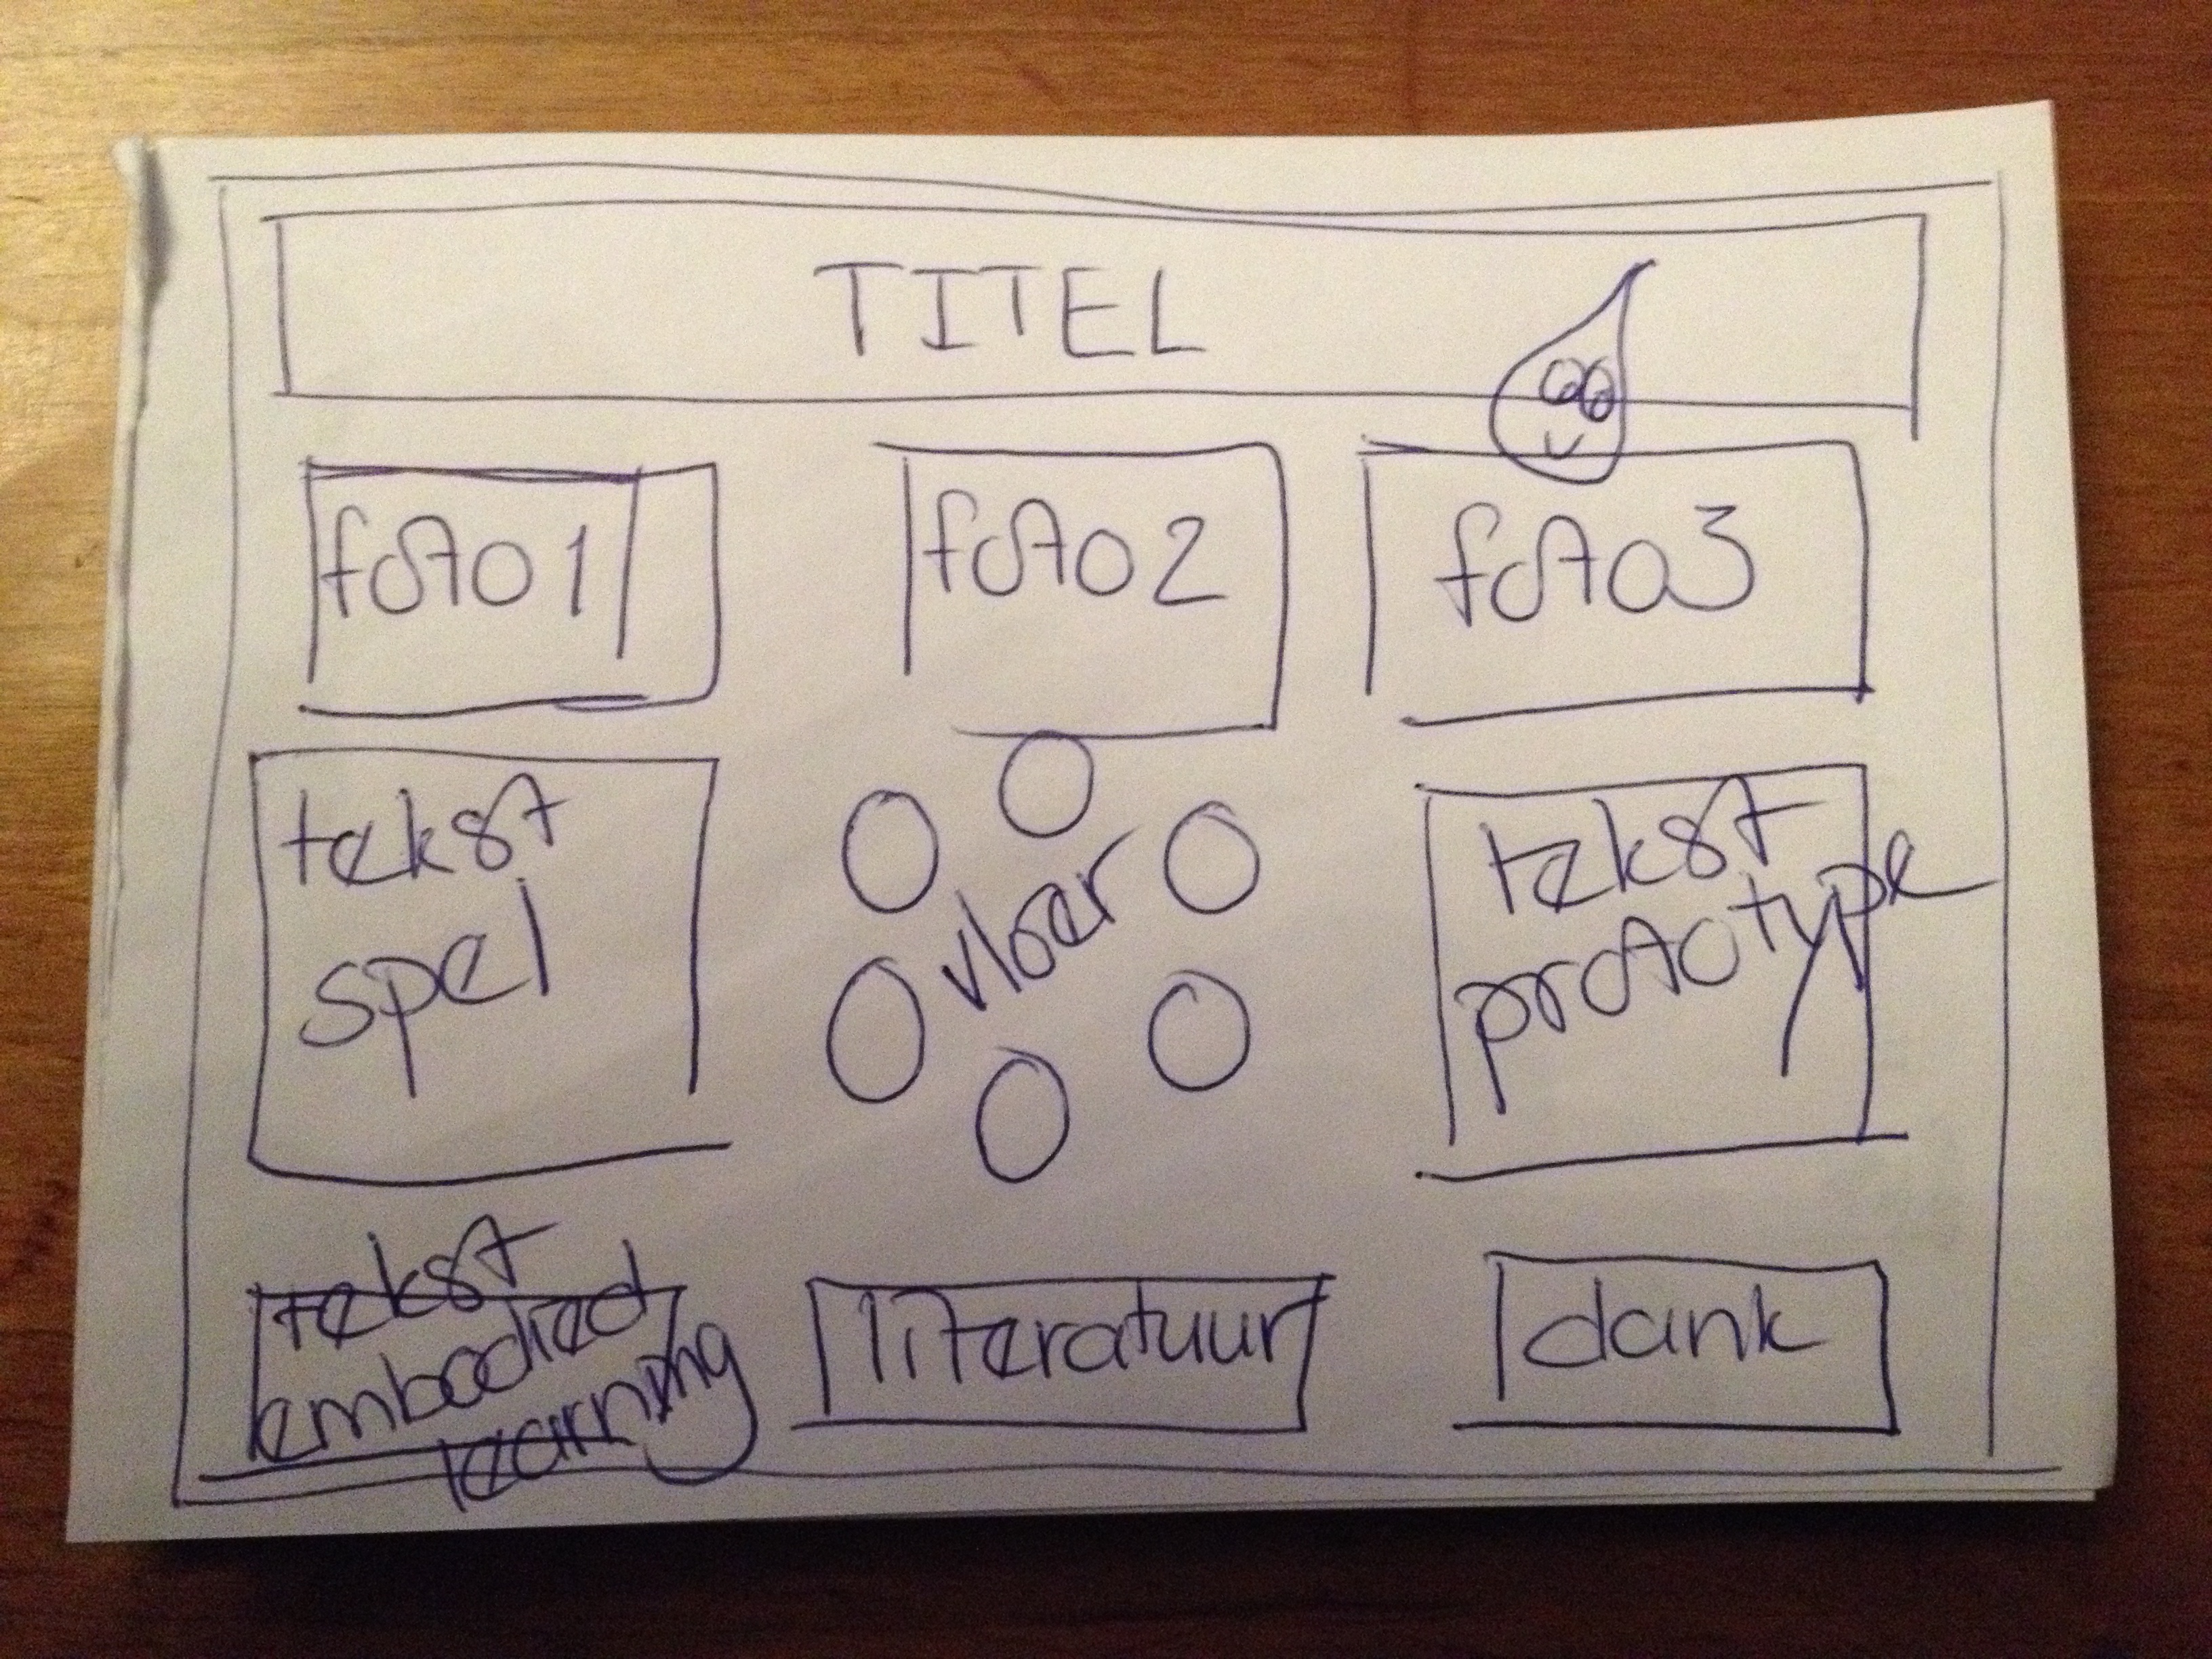 TITEL
foto 1
foto 2
foto 3
tekst
spel
vloer
tekst
prototype
tekst
embodied
learning
literatuur
dank